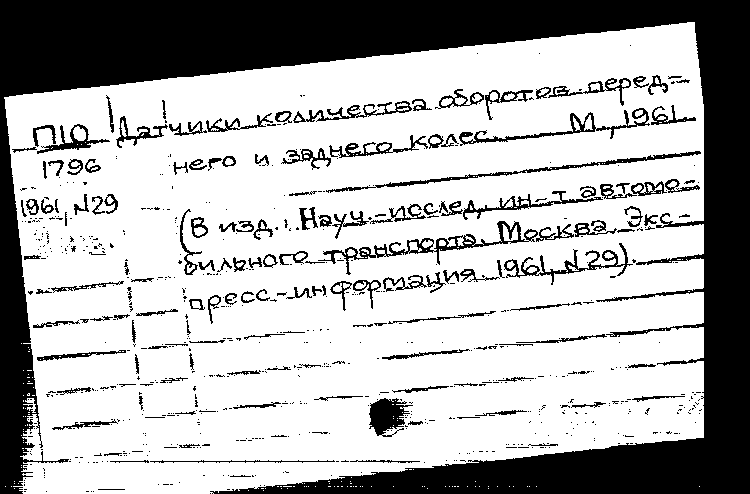 П10 Датчики количества оборотов перед-
1796 него и заднего колес. М., 1961
1961, №29
(В изд.: Науч.-исслед. ин-т автомо-
бильного транспорта. Москва. Экс-
пресс-информация. 1961, №29).